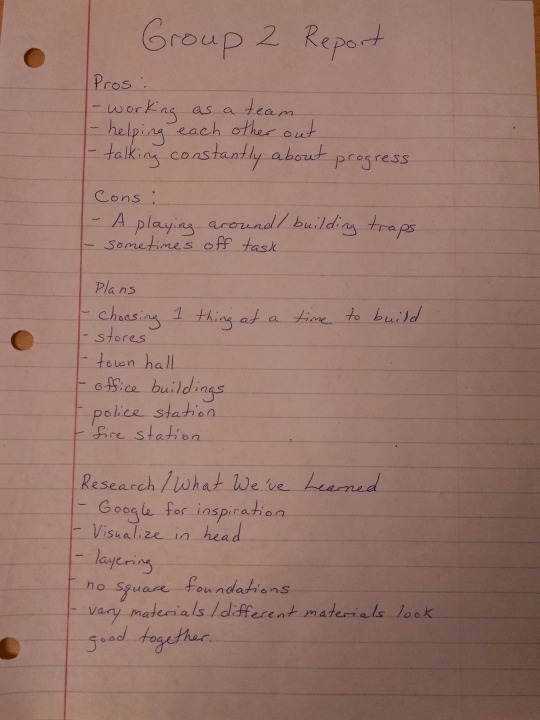 Group 2 Report
Pros:
- working as a team
- helping each other out
- talking constantly about progress
Cons:
- A playing around/building traps
- sometimes off task
Plans
- choosing 1 thing at a time to build
- stores
- town hall
- office buildings
- police station
- fire station
Research/What We've Learned
- Google for inspiration
- Visualize in head
- layering
- no square foundations
- vary materials/different materials look
good together.